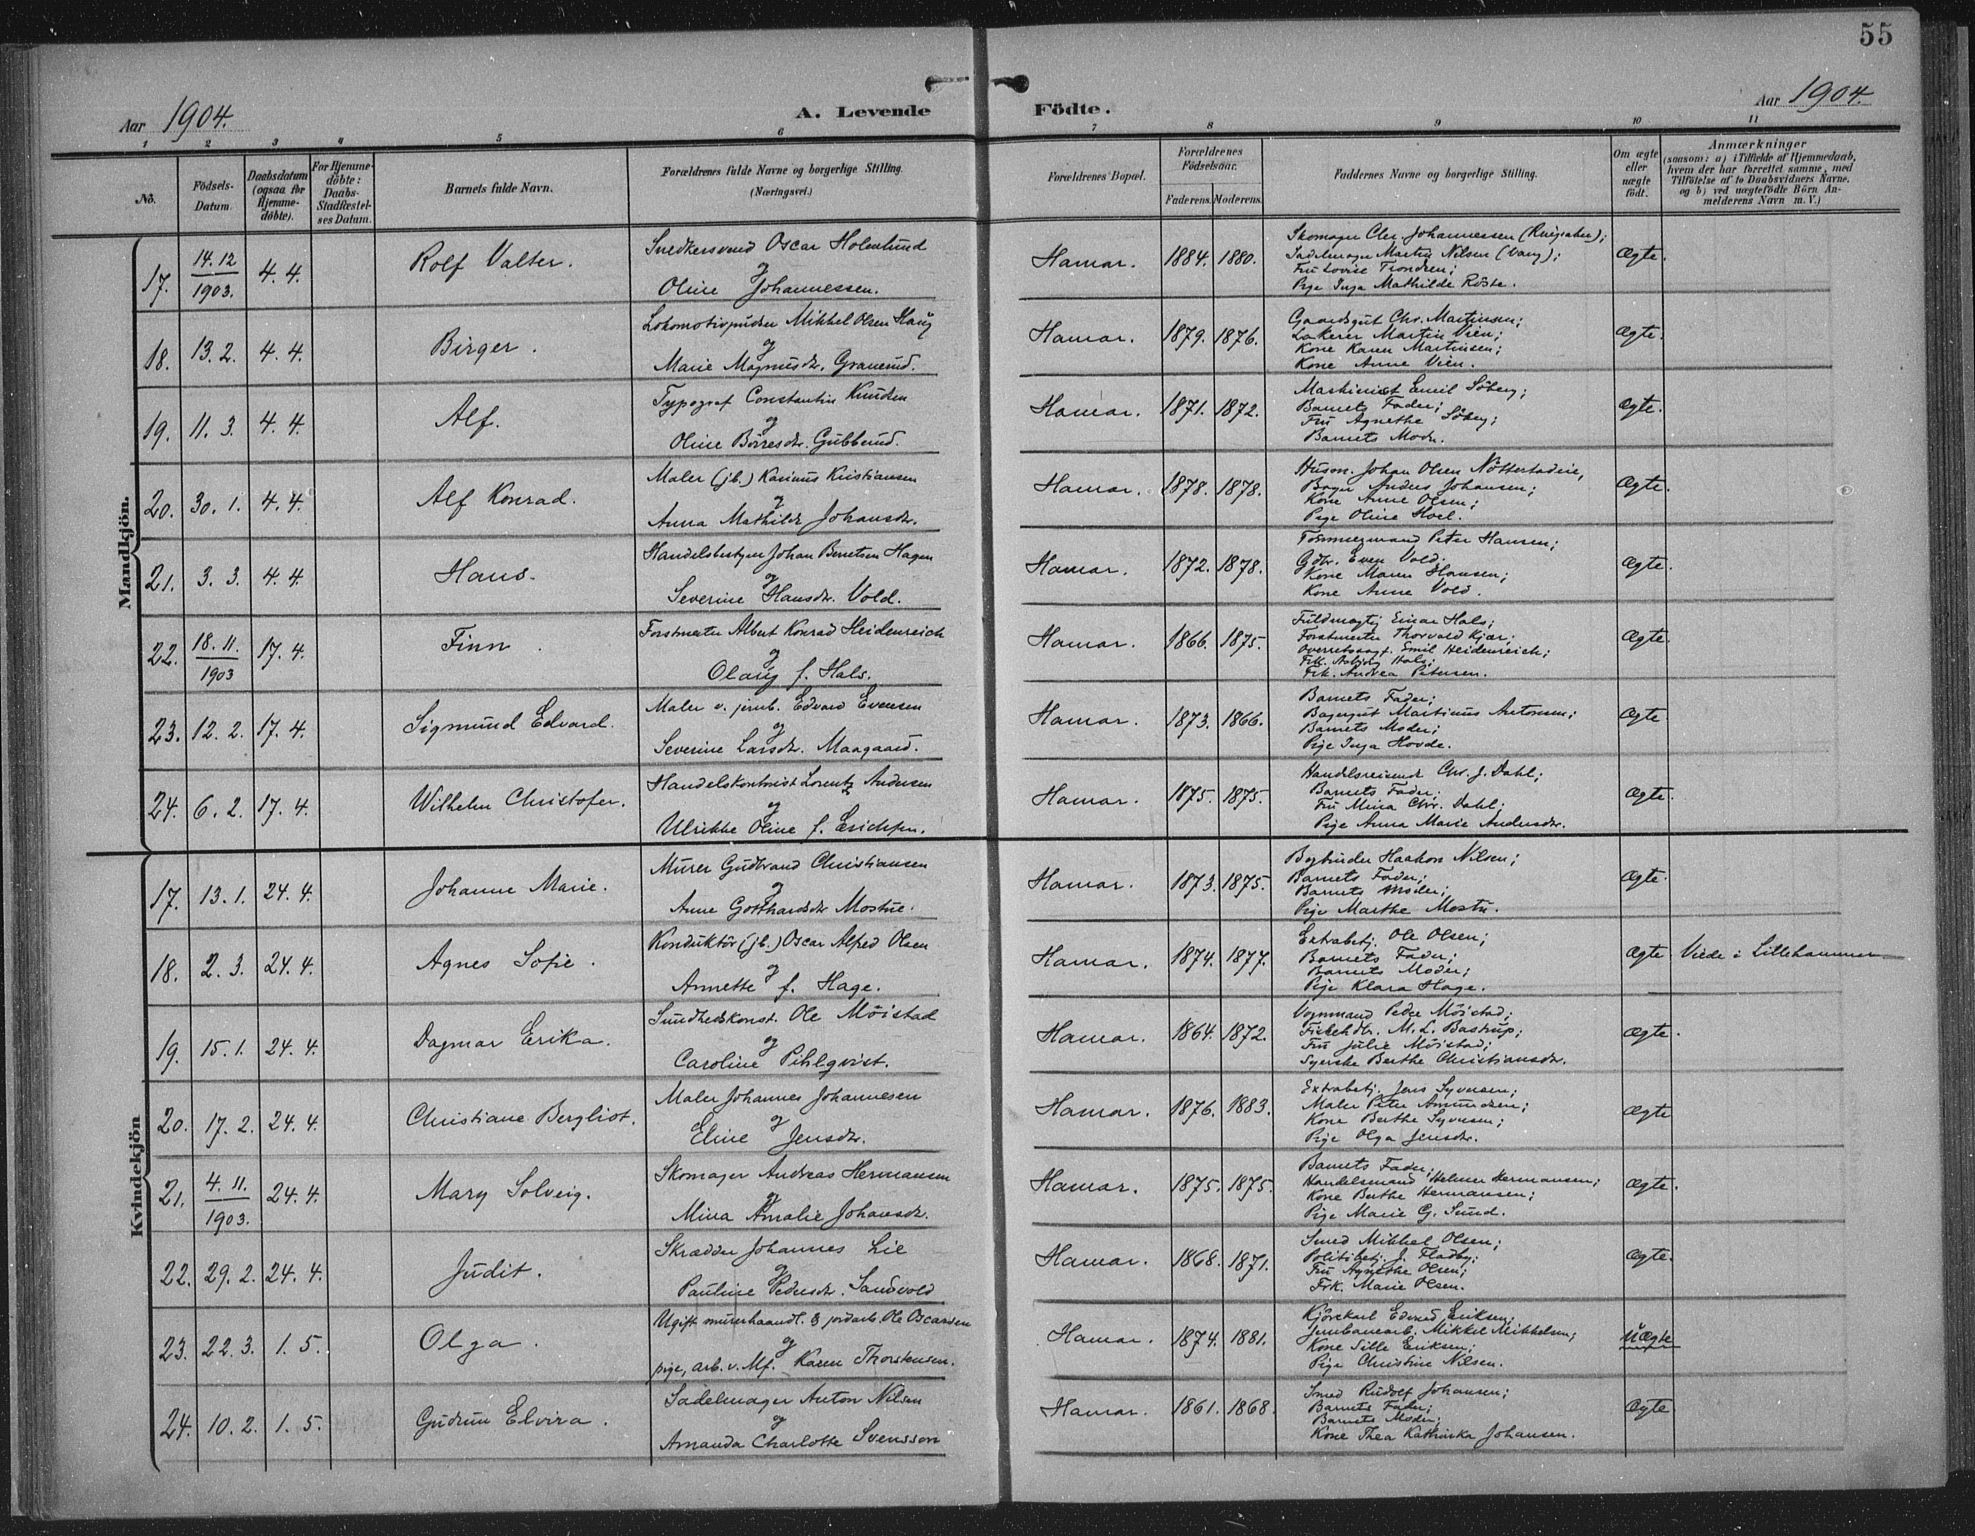 55
Aar 1904.
A. Levende Födte.
Aar 1904.
1 2 3 4 5 6 7 8 9 10 11
No.
Födsels-Datum.
Daabsdatum (ogsaa for Hjemme-döbte).
For Hjemme-döbte: Daabs-Stadfæstel-ses Datum.
Barnets fulde Navn.
Forældrenes fulde Navne og borgerlige Stilling. (Næringsvei.)
Forældrenes Bopæl.
Forældrenes Födselsaar.
Faderens. Moderens.
Faddernes Navne og borgerlige Stilling.
Om ægte eller uægte födt.
Anmærkninger
(saasom: a) i Tilfælde af Hjemmedaab,
hvem der har forrettet samme, med
Tilföielse af to Daabsvidners Navne,
og b) ved uægtefödte Börn An-
melderens Navn m. V.)
Mandkjön.
17. 14.12 1903. 4.4. Rolf Valter.
Snedkersvend Oscar Holmlund
og
Oline Johannessen.
Hamar. 1884. 1880.
Skomager Chr. Johannessen (Ringsaker);
Sadelmager Martin Nilsen (Vang);
Fru Lovise Trondsen;
Pige Inga Mathilde Röste.
Ægte.
18. 13.2. 4.4. Birger.
Lokomotivpudser Mikkel Olsen Haug
og
Marie Magnusdr. Granerud.
Hamar. 1879. 1876.
Gaardsgut Chr. Martinsen;
Lakerer Martin Vien;
Kone Karen Martinsen;
Kone Anne Vien.
Ægte.
19. 11.3. 4.4. Alf.
Typograf Constantin Knudsen
og
Oline Börresdr. Gubberud.
Hamar. 1871. 1872.
Maskinist Emil Söberg;
Barnets Fader;
Fru Agnethe Söberg;
Barnets Moder.
Ægte.
20. 30.1. 4.4. Alf Konrad.
Maler (jb.) Karinus Kristiansen
og
Anna Mathilde Johansdr.
Hamar. 1878. 1878.
Husm. Johan Olsen
Anders Johansen;
Kone Anne Olsen;
Pige Oline Hoel.
Ægte.
21. 3.3. 4.4. Hans.
Handelsbestyrer Johan Berntsen Hagen
og
Severine Hansdr. Vold.
Hamar. 1872. 1878.
Tömmermand Peter Hansen;
Gdbr. Even Vold.
Kone Maren Hansen;
Kone Anne Vold.
Ægte.
22. 18.11. 1903 17.4. Finn.
Forstmester Albert Konrad Heidenreich
og
Olaug f. Hals.
Hamar. 1866. 1875.
Fuldmægtig Einar Hals;
Forstmester Thorvald Kiær;
Overretssagf. Emil Heidenreich;
Frk. Asbjörg Hals;
Frk. Andrea Petersen.
Ægte
23. 12.2. 17.4. Sigmund Edvard.
Maler v. jernb. Edvard Evensen
og
Severine Larsdr. Maagaard.
Hamar. 1873. 1866.
Barnets Fader;
Bagergut Martinus Antonsen;
Barnets Moder;
Pige Inga Hovde.
Ægte
24. 6.2. 17.4. Wilhelm Christofer.
Handelskontorist Lorentz Andersen
og
Ulrikke Oline f. Erichsen.
Hamar. 1875. 1875.
Handelsreisende Chr. J. Dahl;
Barnets Fader;
Fru Mina Chr. Dahl;
Pige Anna Marie Andersdr.
Ægte.
Kvindekjön
17. 13.1. 24.4. Johanne Marie.
Murer Gudbrand Christiansen
og
Anne Gotthardsdr Mostue.
Hamar. 1873. 1875.
Bogbinder Haakon Nilsen;
Barnets Fader;
Barnets Moder;
Pige Marthe Mostu.
Ægte.
18. 2.3. 24.4. Agnes Sofie.
Konduktör (jb.) Oscar Alfred Olsen
og
Annette f. Hage.
Hamar. 1874. 1877.
Extrabetj. Ole Olsen;
Barnets Fader;
Barnets Moder;
Pige Klara Hage.
Ægte Viede i Lillehammer
19. 15.1. 24.4. Dagmar Erika.
Sundhedskonst. Ole Möistad
og
Caroline Pihlqvist.
Hamar. 1864. 1872.
Vognmand Peder Möistad;
Fiskehdlr. M. L. Bastrup;
Fru Julie Möistad;
Syerske Berthe Christiansdr.
Ægte.
20. 17.2. 24.4. Christiane Bergliot.
Maler Johannes Johannesen
og
Eline Jensdr.
Hamar. 1876. 1883.
Extrabetj. Jens Syversen;
Maler Peter Amundsen;
Kone Berthe Syversen;
Pige Olga Jensdr.
Ægte
21. 4.11. 1903. 24.4. Mary Solveig.
Skomager Andreas Hermansen
og
Mina Amalie Johansdr.
Hamar. 1875. 1875.
Barnets Fader;
Handelsmand Helmer Hermansen;
Kone Berthe Hermansen;
Pige Marie G. Sund.
Ægte.
22. 29.2. 24.4. Judit.
Skrædder Johannes Lie
og
Pauline Pedersdr. Sandvold
Hamar. 1868. 1871.
Smed Mikkel Olsen;
Politibetj. J. Fladby;
Fru Agnethe Olsen;
Frk. Marie Olsen.
Ægte.
23. 22.3. 1.5. Olga.
Ugift murerhaandl. & jordarb. Ole Oscarsen
og
pige, arb. v. Mf. Karen Thorstensen.
Hamar. 1874. 1881.
Kjörekarl Edvard Eriksen;
Jernbanearb. Mikkel Mikkelsen;
Kone Sille Eriksen;
Pige Christine Nilsen.
Uægte
24. 10.2. 1.5. Gudrun Elvira.
Sadelmager Anton Nilsen
og
Amanda Charlotte Svensson
Hamar. 1861. 1868.
Smed Rudolf Johansen;
Barnets Fader;
Barnets Moder;
Kone Thea Kathinka Johansen.
Ægte